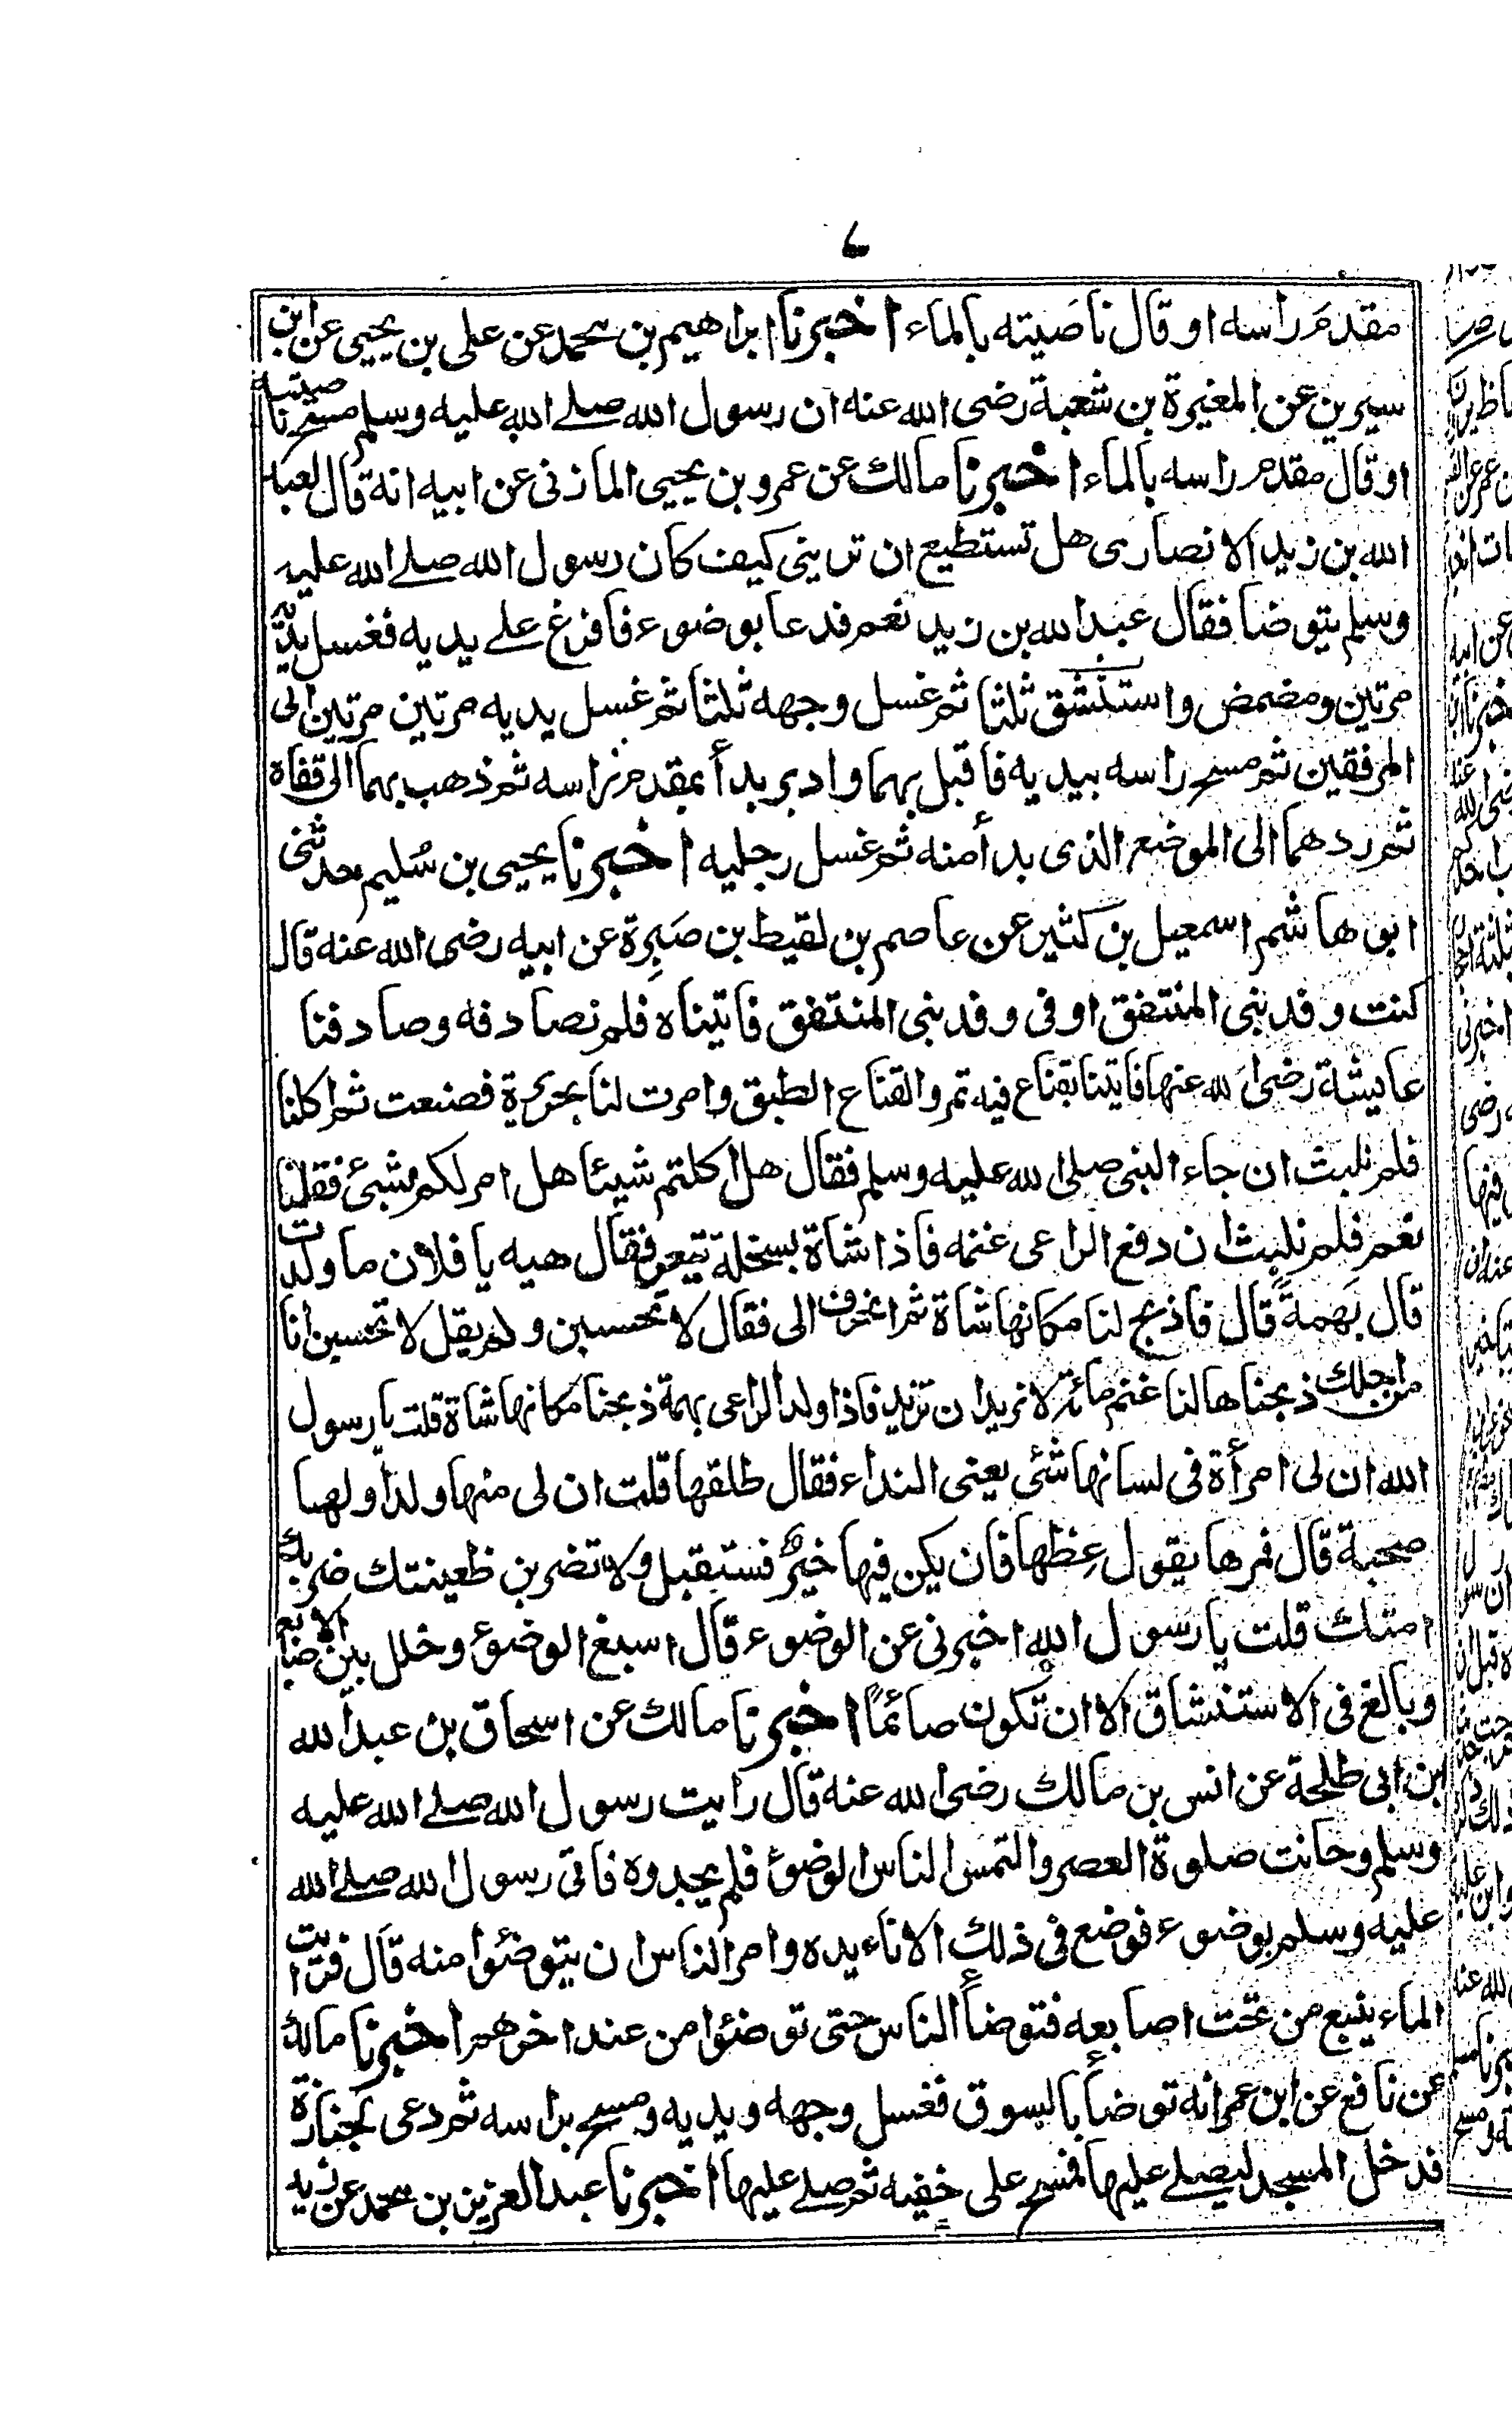 مقدم راسه او قال ناصيته بالماء اخبرنا ابراهيم بن محمد عن على بن يحيى عن ابن
سيرين عن المغيرة بن شعبة رضى الله عنه ان رسول الله صلے الله عليه وسلم مسح ناصيته
او قال مقدم راسه بالماء اخبرنا مالك عن عمرو بن يحيى المازنى عن ابيه انه قال لعبد
الله بن زيد الانصارى هل تستطيع ان ترينى كيف كان رسول الله صلے الله عليه
وسلم يتوضا فقال عبد الله بن زيد نعم فدعا بوضوء فافرغ علے يديه فغسل يديه
مرتين ومضمض واستنشق ثلثا ثم غسل وجهه ثلثا ثم غسل يديه مرتين مرتين الى
المرفقين ثم مسح راسه بيديه فاقبل بهما وادبر بدأ بمقدم راسه ثم ذهب بهما الى قفاه
ثم ردهما الى الموضع الذى بدأ منه ثم غسل رجليه اخبرنا يحيى بن سُليم حدثنى
ابو هاشم اسمعيل بن كثير عن عاصم بن لقيط بن صَبِرة عن ابيه رضى الله عنه قال
كنت وفد بنى المنتفق او فى وفد بنى المنتفق فاتيناه فلم نصادفه وصادفنا
عايشة رضى الله عنها فاتينا بقناع فيه تمر والقناع الطبق وامرت لنا بحريرة فصنعت ثم اكلنا
فلم نلبث ان جاء النبى صلى الله عليه وسلم فقال هل اكلتم شيئا هل امر لكم بشئ فقلنا
نعم فلم نلبث ان دفع الراعى غنمه فاذا شاة بسخلة تيعر فقال هيه يا فلان ما ولدت
قال بَهمةً قال فاذبح لنا مكانها شاة ثم انحرف الى فقال لا تحسبن ولم يقل لا تحسبن انا
من اجلك ذبحناها لنا غنم مائة لا نريد ان تزيد فاذا ولد الراعى بهمة ذبحنا مكانها شاة قلت يا رسول
الله ان لى امرأة فى لسانها شئى يعنى النداء فقال طلقها قلت ان لى منها ولدا ولها
صحبة قال فمرها يقول عِظها فان يكن فيها خيرٌ فستقبل ولا تضربن ظعينتك ضربك
امتك قلت يا رسول الله اخبرنى عن الوضوء قال اسبغ الوضوء وخلل بين الاصابع
وبالغ فى الاستنشاق الا ان تكون صائماً اخبرنا مالك عن اسحاق بن عبد الله
ابن ابى طلحة عن انس بن مالك رضى الله عنه قال رايت رسول الله صلے الله عليه
وسلم وحانت صلوة العصر والتمس الناس الوضوء فلم يجدوه فاتى رسول الله صلے الله
عليه وسلم بوضوء فوضع فى ذلك الاناء يده وامر الناس ان يتوضئوا منه قال فرايت
الماء ينبع من تحت اصابعه فتوضأ الناس حتى توضئوا من عند اخرهم اخبرنا مالك
عن نافع عن ابن عمر انه توضأ بالسوق فغسل وجهه ويديه ومسح براسه ثم دعى لجنازة
فدخل المسجد ليصلے عليها فمسح على خفيه ثم صلے عليها اخبرنا عبد العزيز بن محمد عن زيد